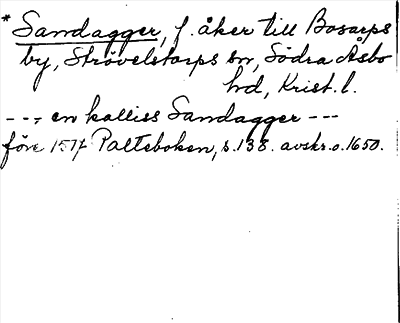 * Sandagger, f. åker till Bosarps
by, Strövelstorps sn, Södra Åsbo
hd, Krist. l.
--, en kalliss Sandagger ---
före 1517 Palteboken, s. 138. avskr. o. 1650.